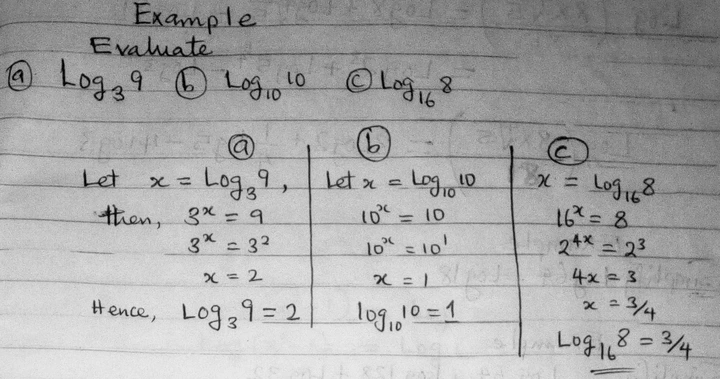 Example
Evaluate
ⓐ Log₃9 ⓑ Log₁₀10 ⓒ Log₁₆8
ⓐ
Let x = Log₃9,
then, 3ˣ = 9
3ˣ = 3²
x = 2
Hence, Log₃9 = 2
ⓑ
Let x = Log₁₀10
10ˣ = 10
10ˣ = 10¹
x = 1
log₁₀10 = 1
ⓒ
x = Log₁₆8
16ˣ = 8
2⁴ˣ = 2³
4x = 3
x = 3/4
Log₁₆8 = 3/4